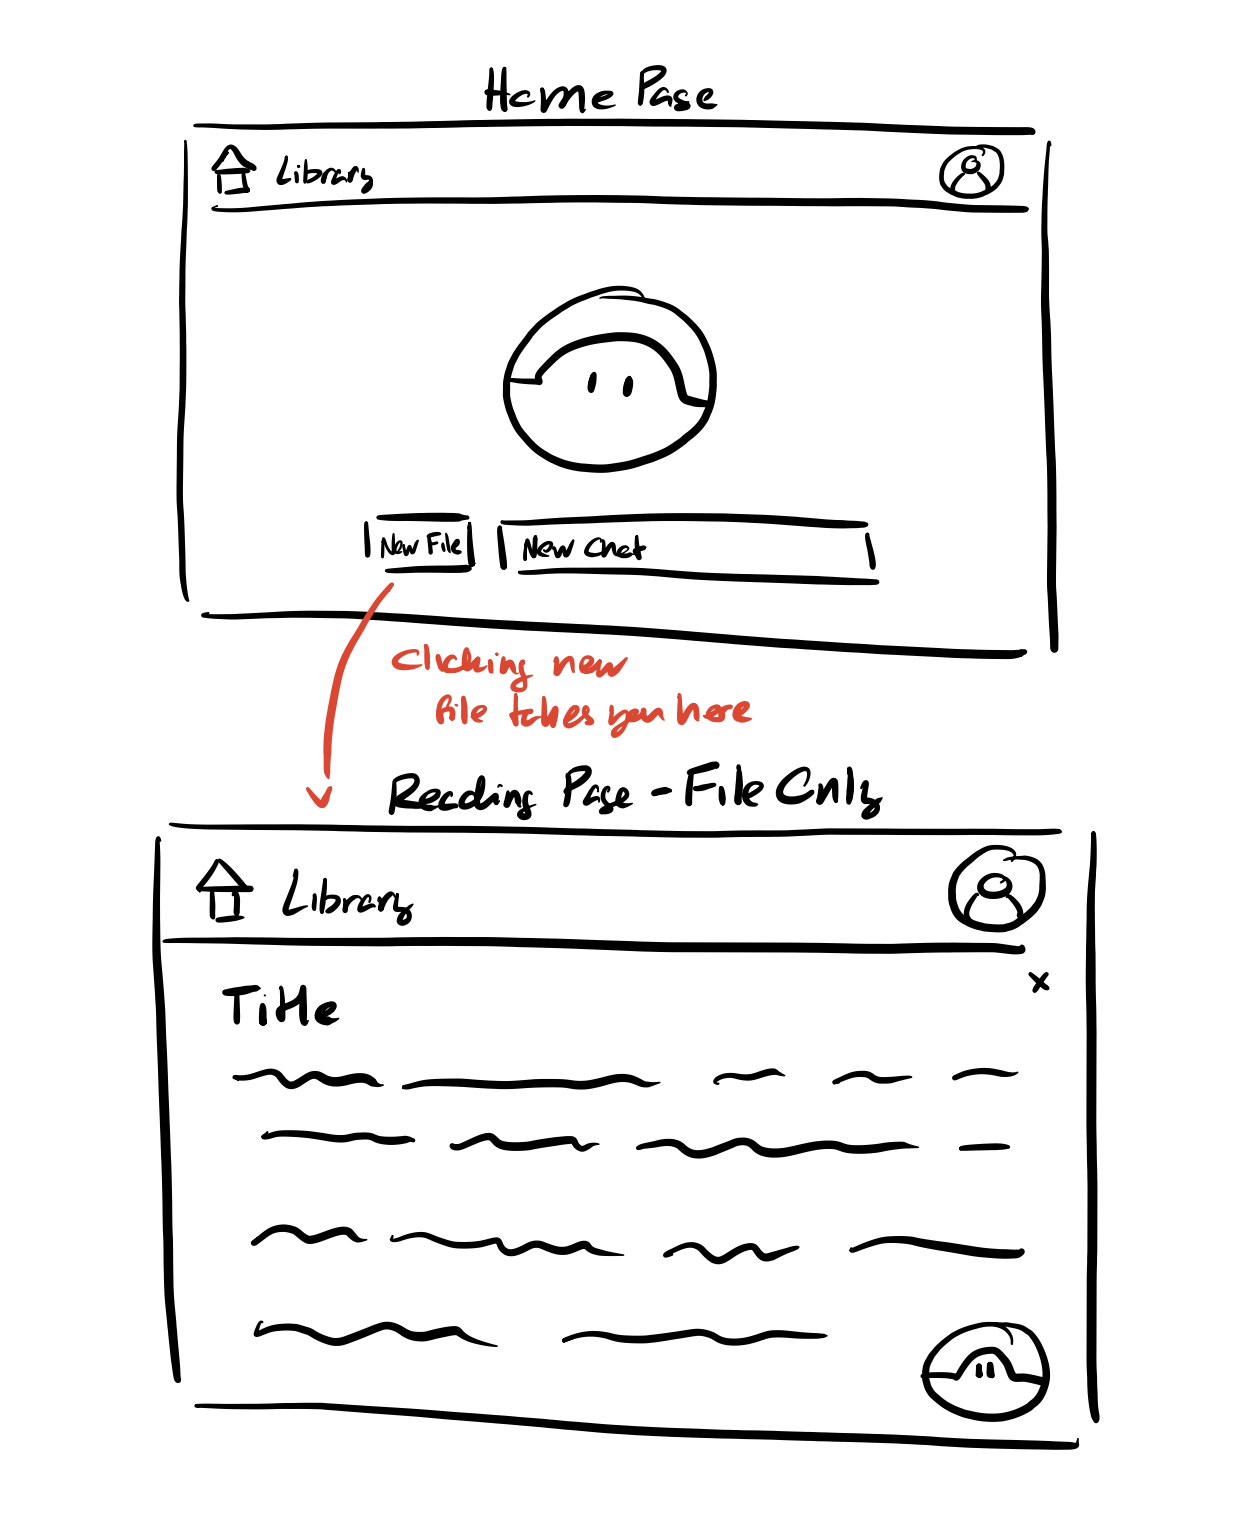 Home Page
Library
New File
New Chat
Clicking new
file takes you here
Reading Page - File Only
Library
x
Title